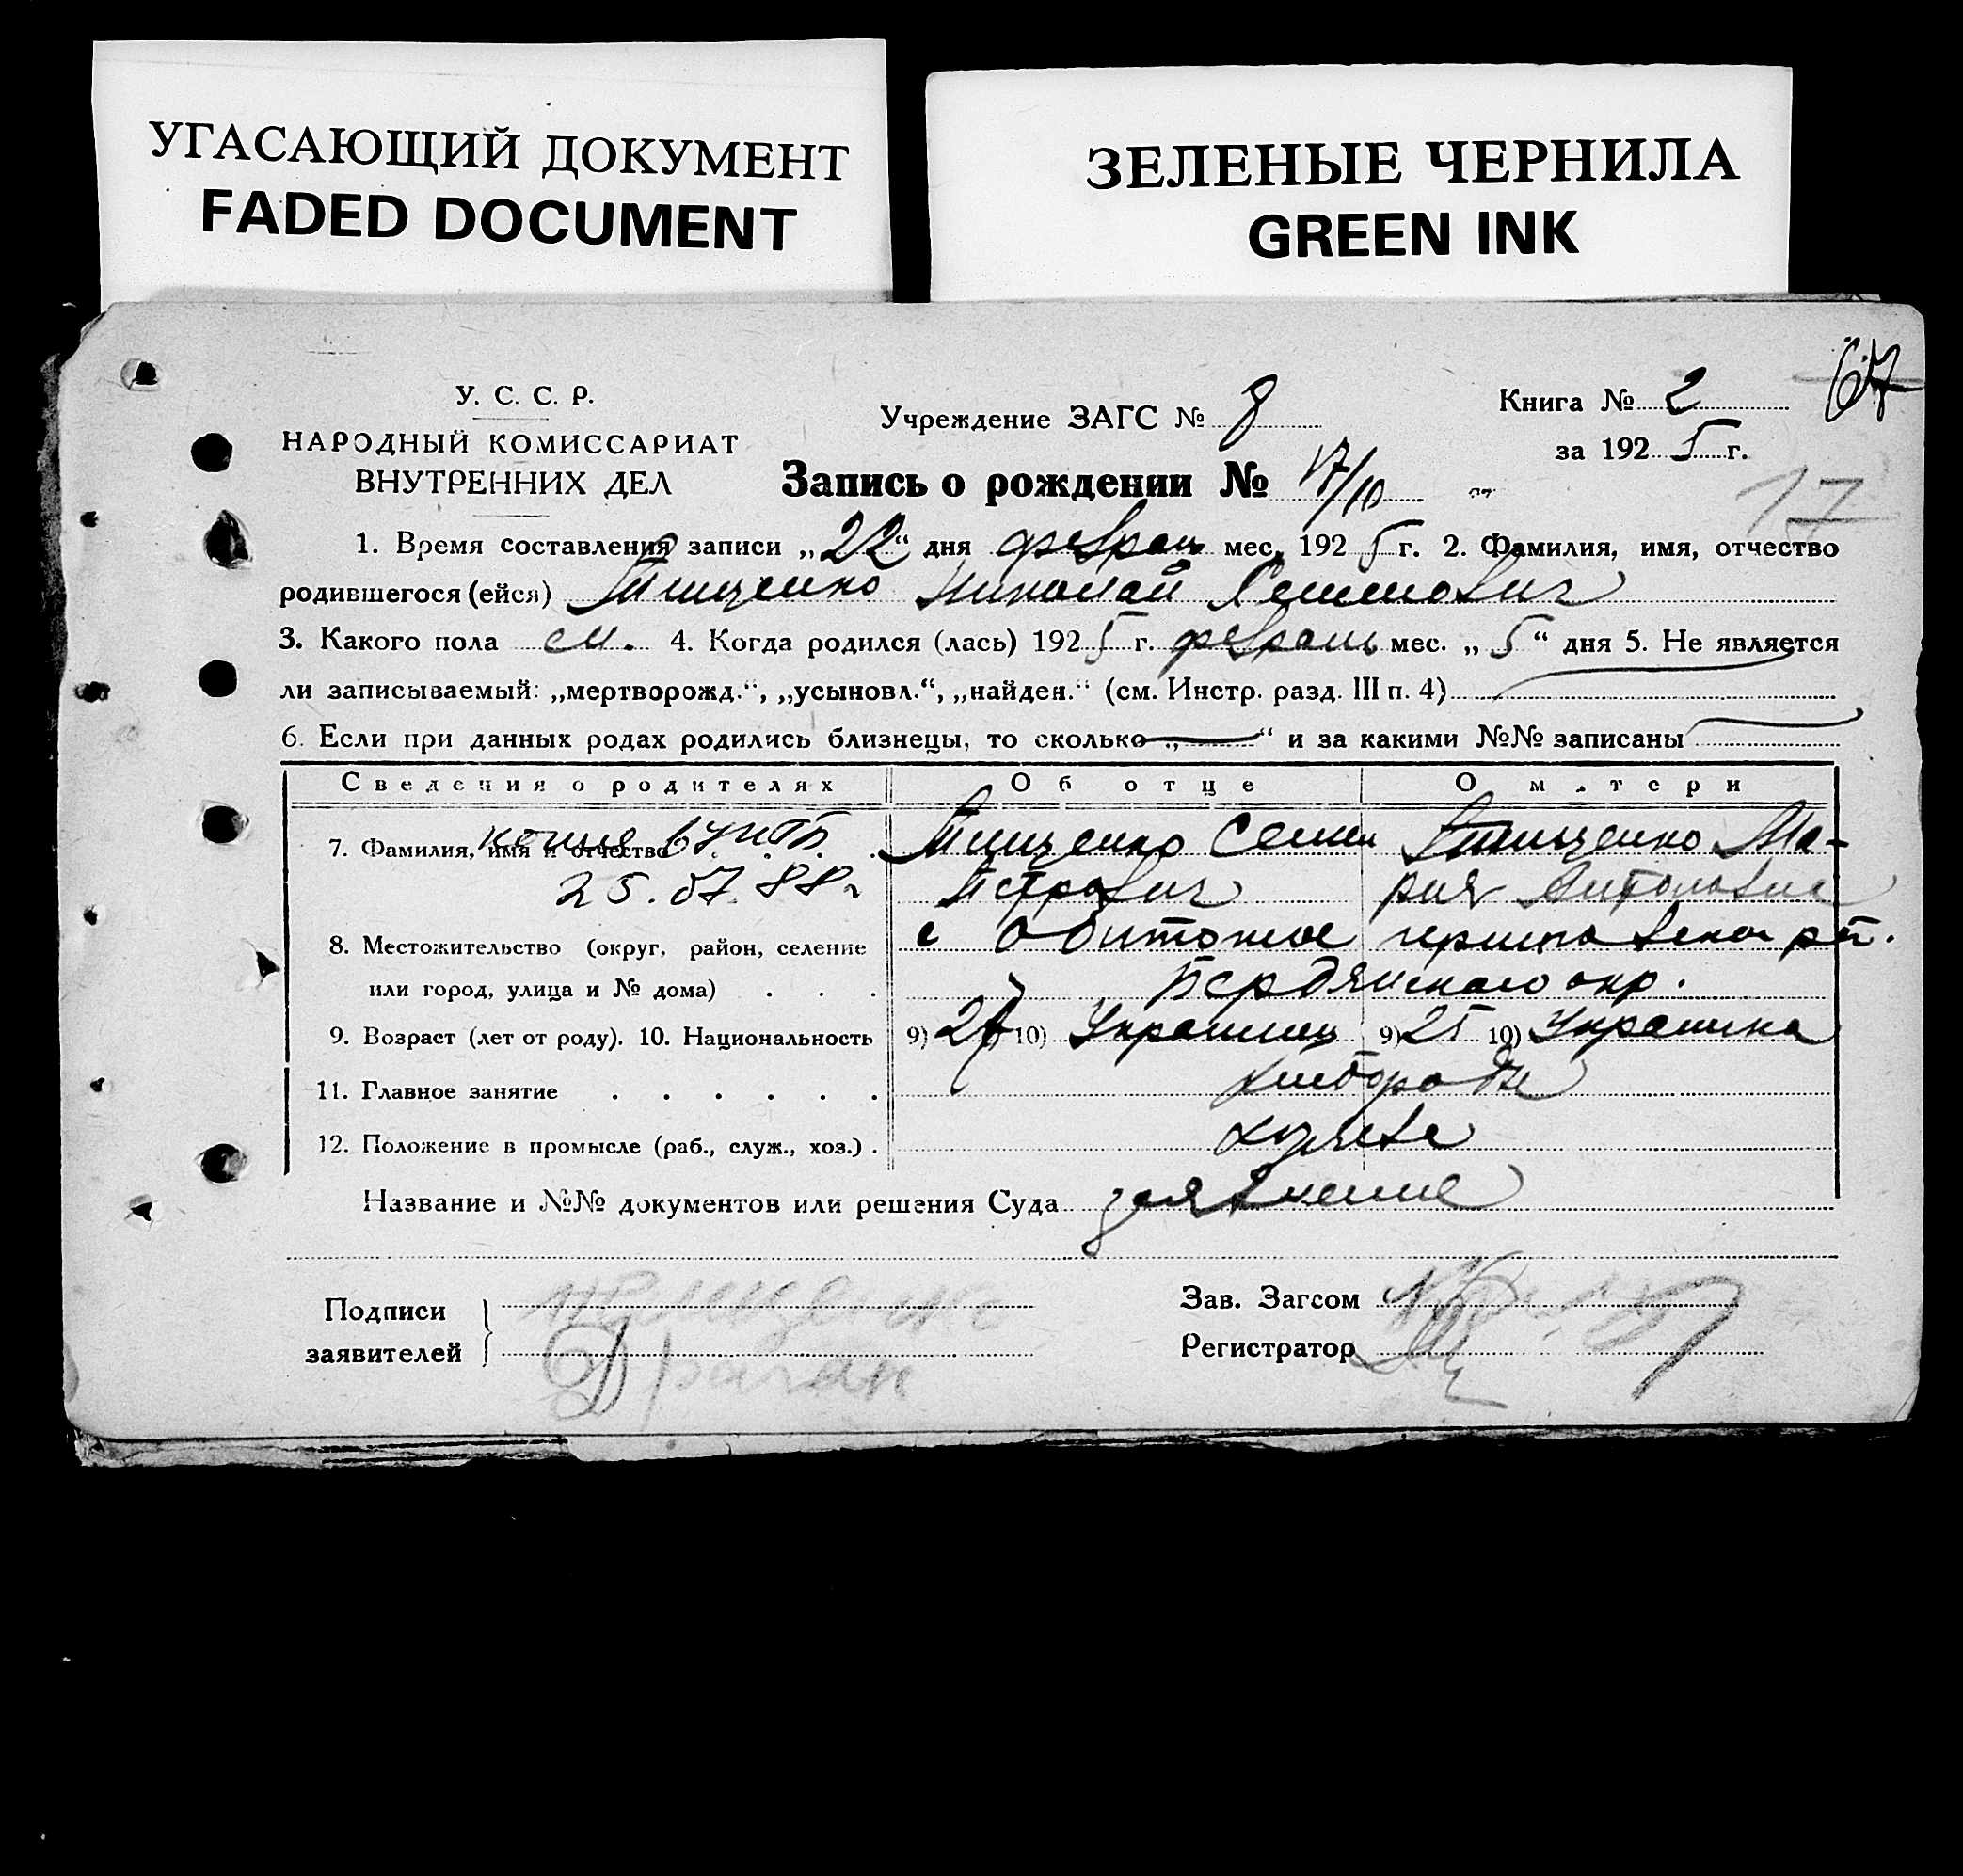 УГАСАЮЩИЙ ДОКУМЕНТ
FADED DOCUMENT
ЗЕЛЕНЫЕ ЧЕРНИЛА
GREEN INK
У. С. С. Р.
НАРОДНЫЙ КОМИССАРИАТ
ВНУТРЕННИХ ДЕЛ
Учреждение ЗАГС № 8
Книга № 2
67
за 1925 г.
Запись о рождении № 17/10
17
1. Время составления записи „22“ дня феврал мес. 1925 г. 2. Фамилия, имя, отчество
родившегося (ейся) Тищенко Николай Семенович
3. Какого пола м. 4. Когда родился (лась) 1925 г. февраль мес. „5“ дня 5. Не является
ли записываемый: „мертворожд.“, „усыновл.“, „найден.“ (см. Инстр. разд. III п. 4)
6. Если при данных родах родились близнецы, то сколько „—“ и за какими №№ записаны
Сведения о родителях Об отце О м.тери
7. Фамилия, имя и отчество Тищенко Семен Тищенко Ма-
копия
25.07.88г
Петрович рия Антоновна
8. Местожительство (округ, район, селение с Обиточное
или город, улица и № дома) Бердянского окр.
9. Возраст (лет от роду). 10. Национальность 9) 27 10) Украинец 9) 25 10) Украинка
11. Главное занятие хлебороды
12. Положение в промысле (раб., служ., хоз.) хозяева
Название и №№ документов или решения Суда заявление
Подписи
заявителей
Тищенко
Драган
Зав. Загсом
Регистратор